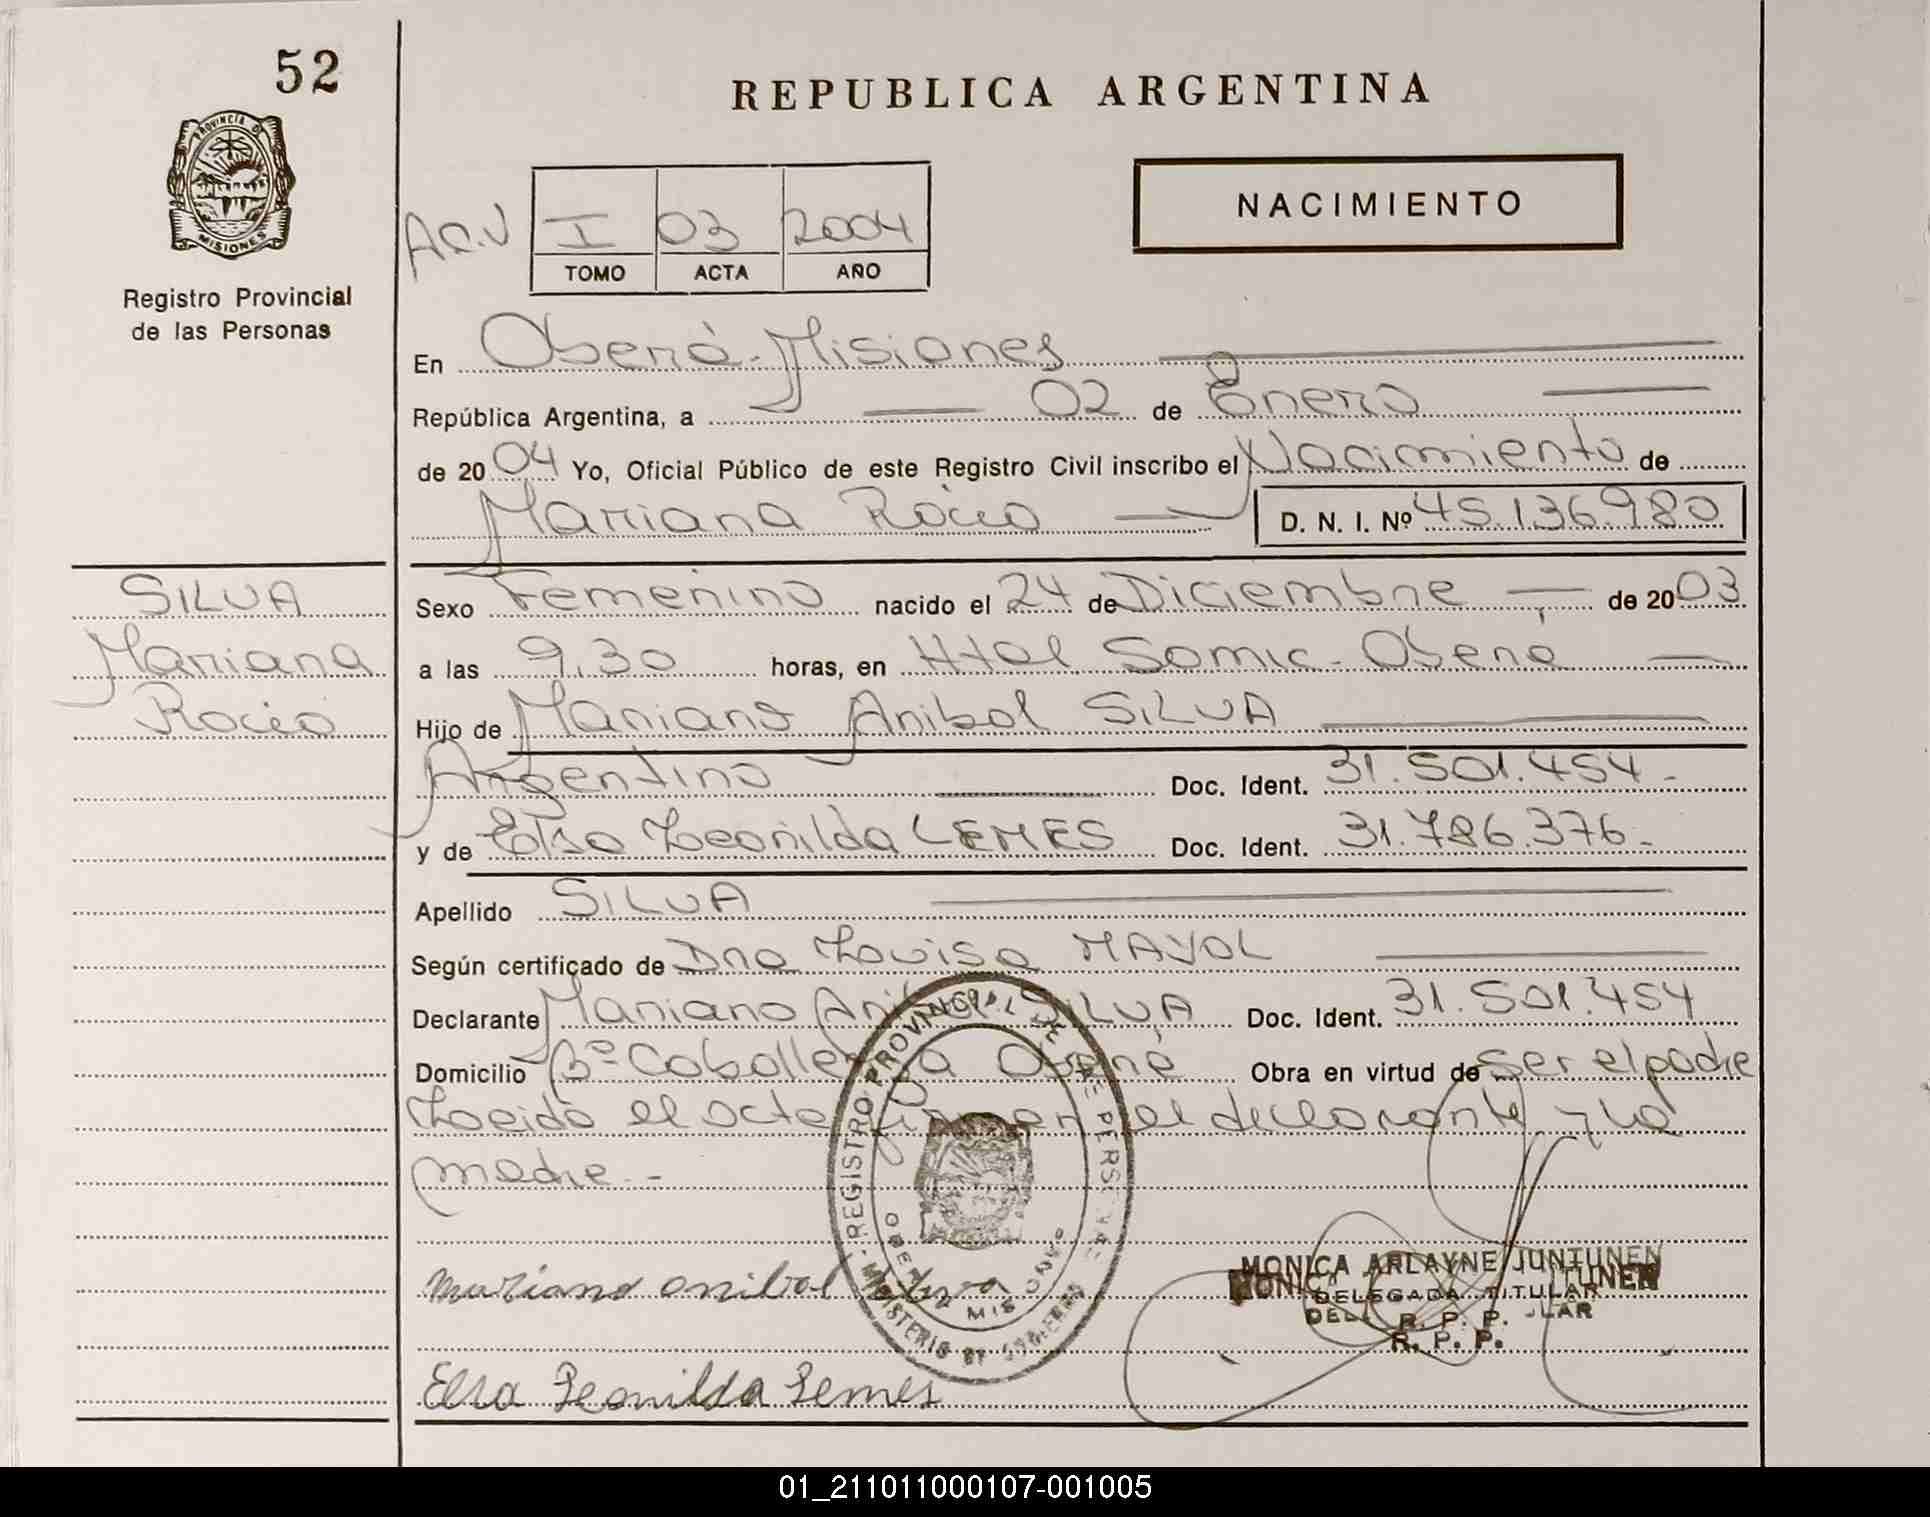 52
PROVINCIA DE
MISIONES
Registro Provincial
de las Personas
REPUBLICA ARGENTINA
NACIMIENTO
I 03 2004
TOMO ACTA AÑO
En Oberá - Misiones
República Argentina, a 02 de Enero
de 2004 Yo, Oficial Público de este Registro Civil inscribo el Nacimiento de
Mariana Rocio D. N. I. Nº 45.136.980
SILVA
Mariana
Rocio
Sexo Femenino nacido el 24 de Diciembre de 2003
a las 9.30 horas, en Htal Samic - Oberá
Hijo de Mariano Anibal SILVA
Argentino Doc. Ident. 31.501.454 -
y de Elsa Leonilda LEMES Doc. Ident. 31.786.376 -
Apellido SILVA
Según certificado de Dra Louisa MAYOL
Declarante Mariano Anibal SILVA Doc. Ident. 31.501.454
Domicilio Bº Caballeriza Oberá Obra en virtud de ser el padre
Leida el acta firman el declarante y la
madre. -
REGISTRO PROVINCIAL DE
MINISTERIO DE GOBIERNO
Mariano Anibal Silva
MONICA ARLAYNE JUNTUNEN
DELEGADA TITULAR
R. P. P.
Elsa Leonilda Lemes
01_211011000107-001005